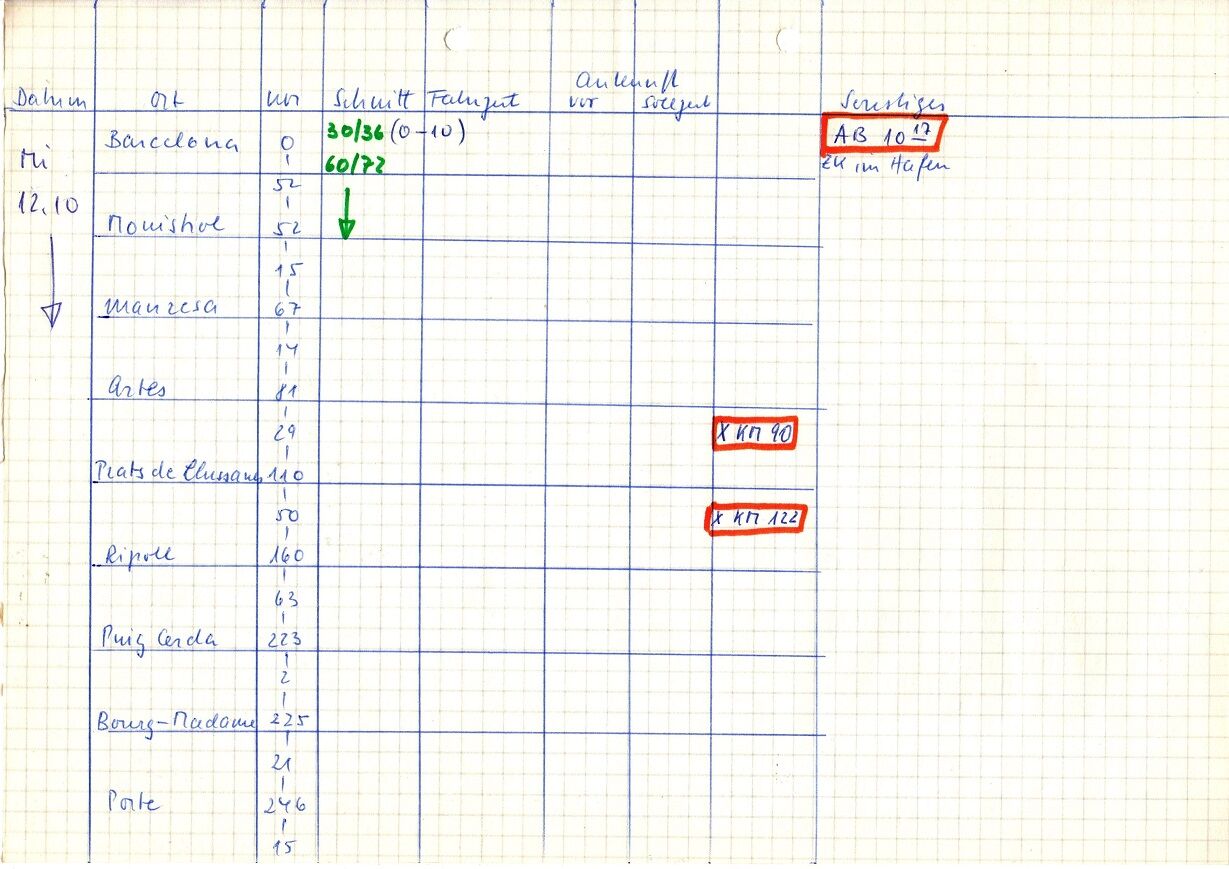 Ankunft
Datum Ort vor Schnitt Fahrzeit vor Sollzeit Sonstiges
Barcelona 0 30/36 (0-10) AB 10 17
Mi 60/72 ZK im Hafen
52
12.10
Monistrol 52
15
Manresa 67
14
Artes 81
29 X KM 90
Prats de Llussanes 110
50 X KM 122
Ripoll 160
63
Puig Cerda 223
2
Bourg-Madame 225
21
Porte 246
15